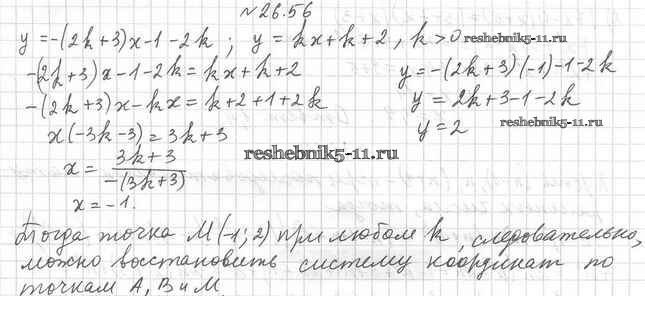 №26.56
y = -(2k+3)x-1-2k ; y = kx+k+2 , k>0 reshebnik5-11.ru
-(2k+3)x-1-2k = kx+k+2
y = -(2k+3)(-1)-1-2k
-(2k+3)x-kx = k+2+1+2k
y = 2k+3-1-2k
x(-3k-3) = 3k+3
y = 2
reshebnik5-11.ru
x = 3k+3 / -(3k+3)
reshebnik5-11.ru
x = -1.
Тогда точка M(-1; 2) при любом k, следовательно,
можно восстановить систему координат по
точкам A, B и M.